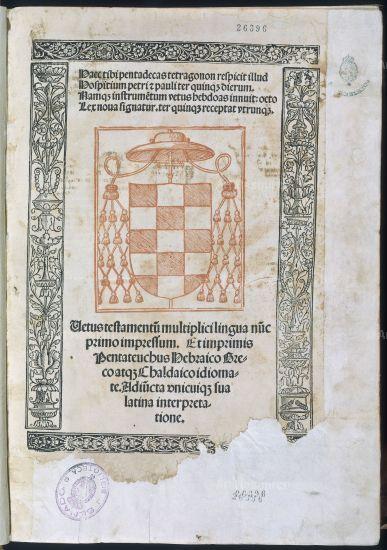 26396
Haec tibi pentadecas tetragonon respicit illud
Hospitium petri ⁊ pauli ter quinqꝫ dierum.
Namqꝫ instrumētum vetus hebdoas innuit: octo
Lex noua signatur. ter quinqꝫ receptat vtrunqꝫ.
Uetus testamentū multiplici lingua nūc
primo impressum. Et imprimis
Pentateuchus Hebraico Gre-
co atqꝫ Chaldaico idioma-
te. Adiūcta vnicuiqꝫ sua
latina interpreta-
tione.
BIBLIOTECA
SENADO